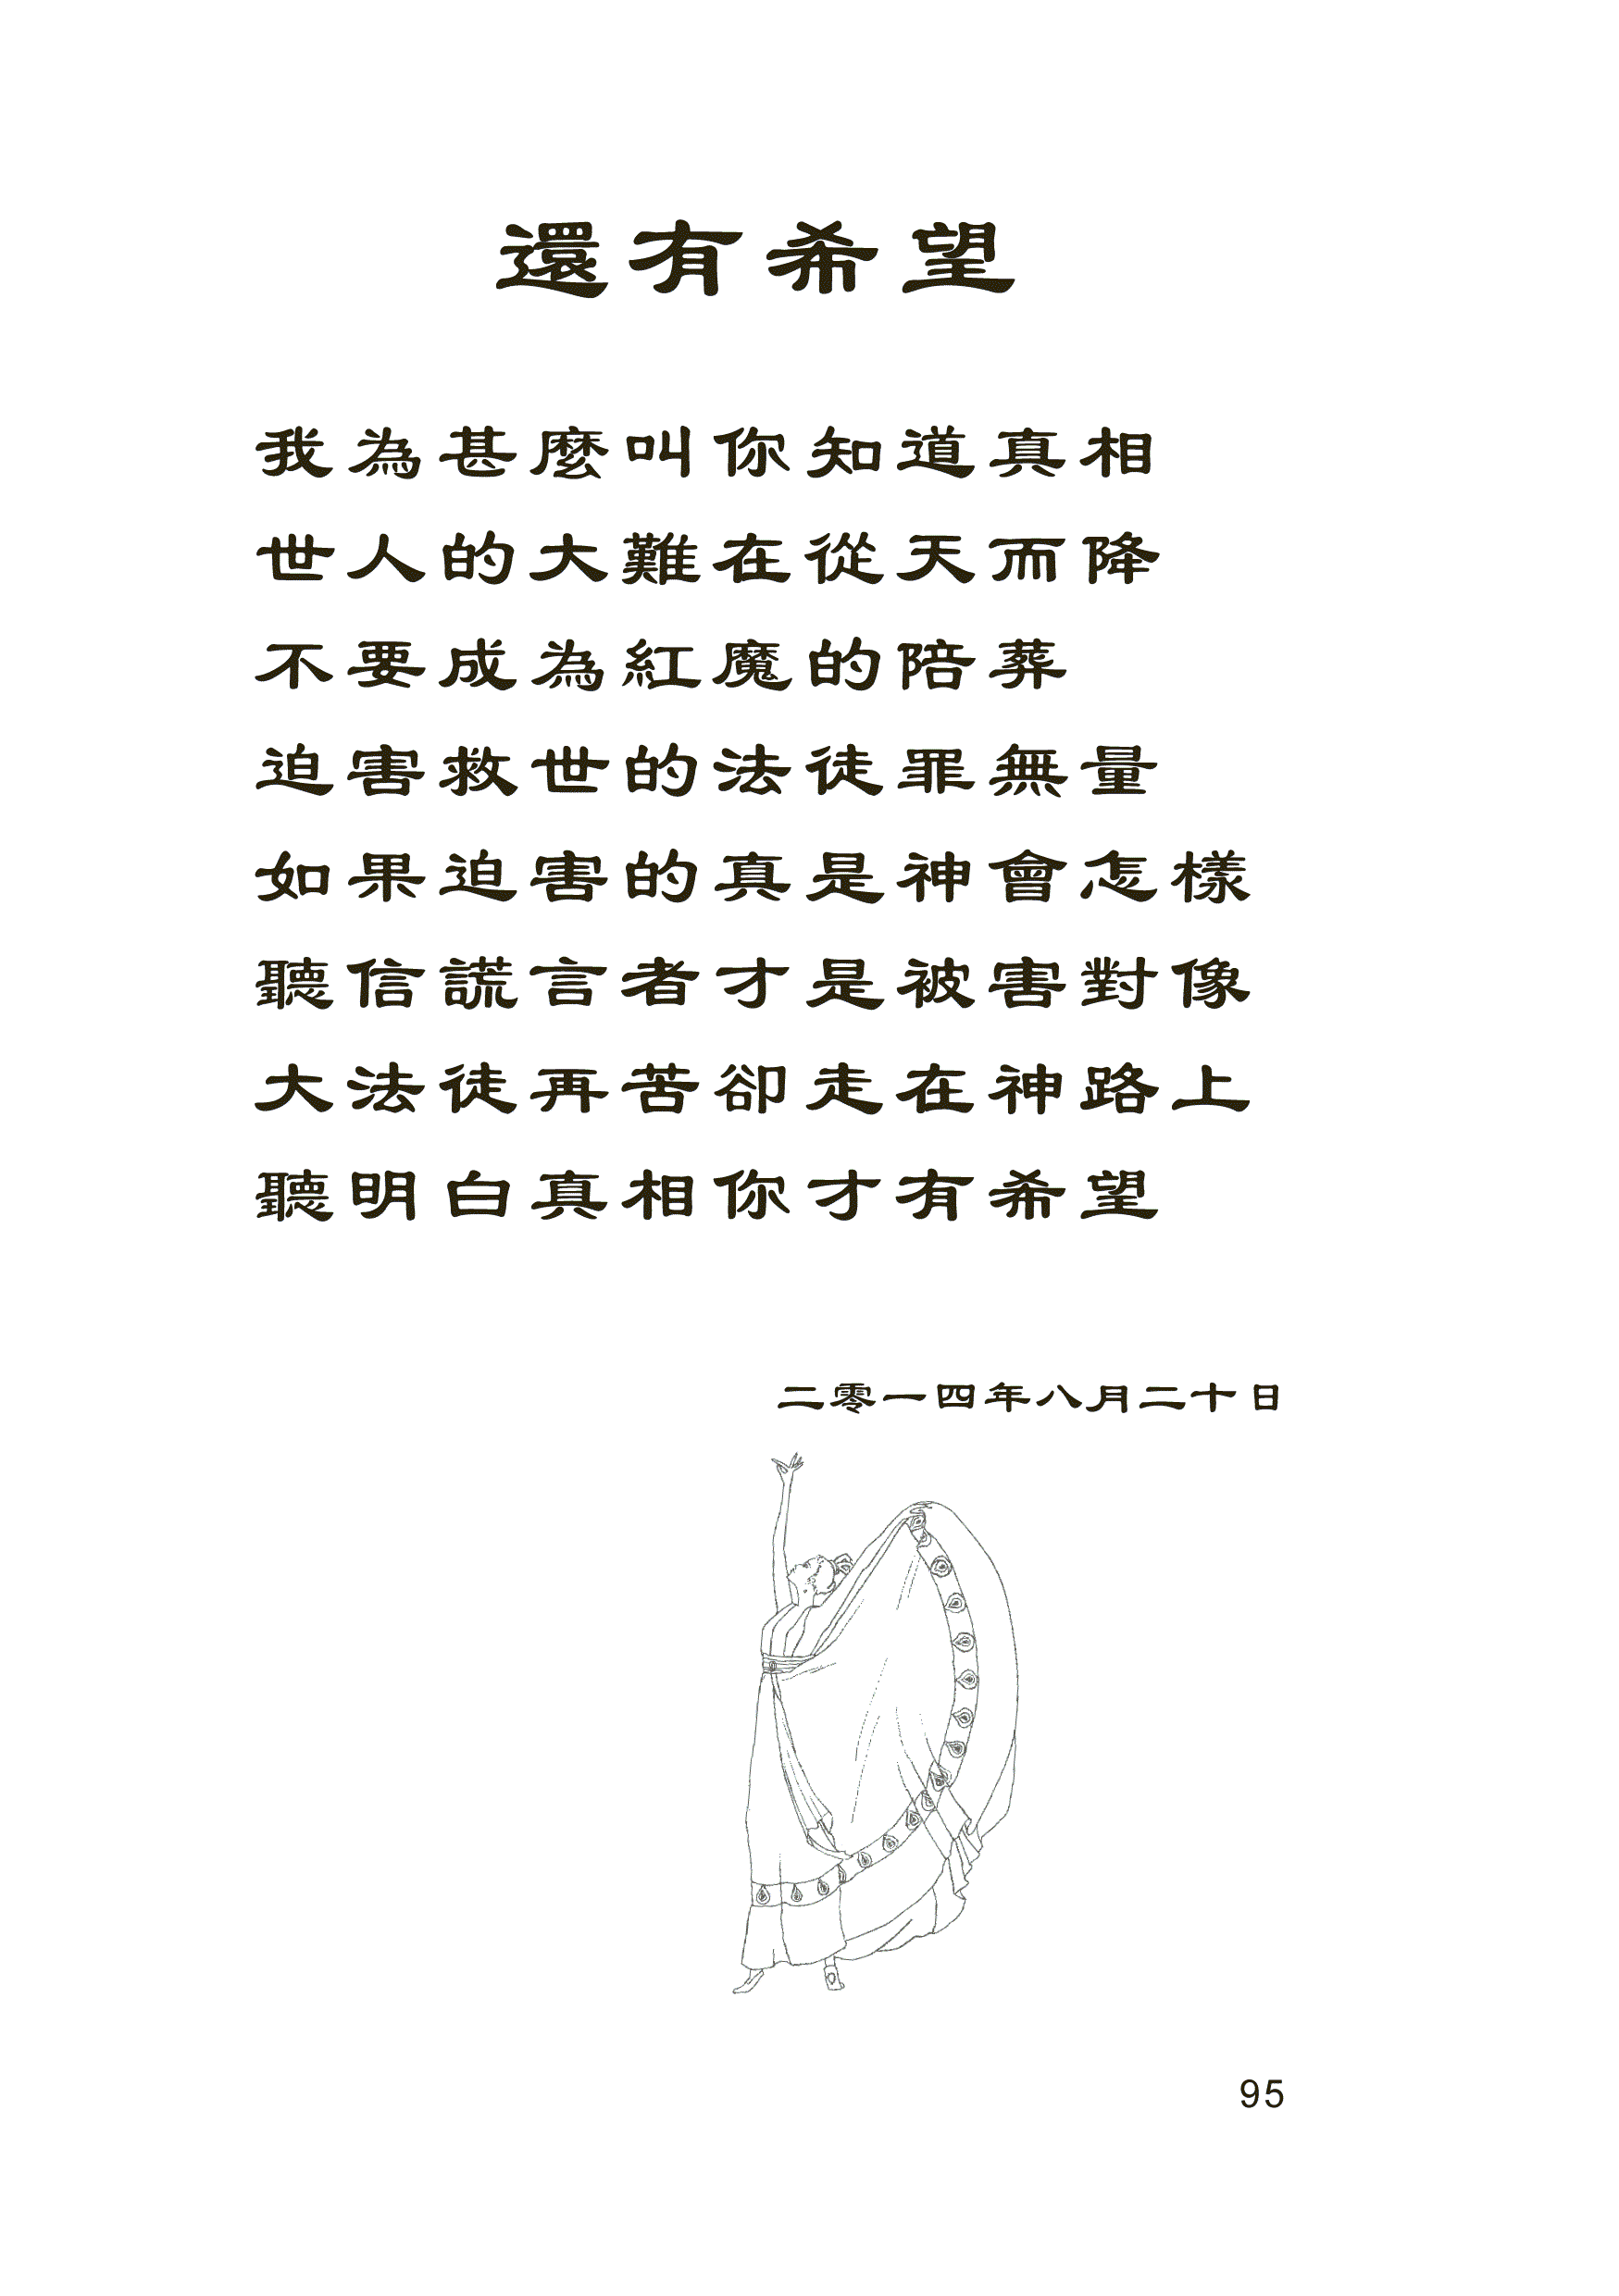 還有希望
我為甚麼叫你知道真相
世人的大難在從天而降
不要成為紅魔的陪葬
迫害救世的法徒罪無量
如果迫害的真是神會怎樣
聽信謊言者才是被害對像
大法徒再苦卻走在神路上
聽明白真相你才有希望
二零一四年八月二十日
95